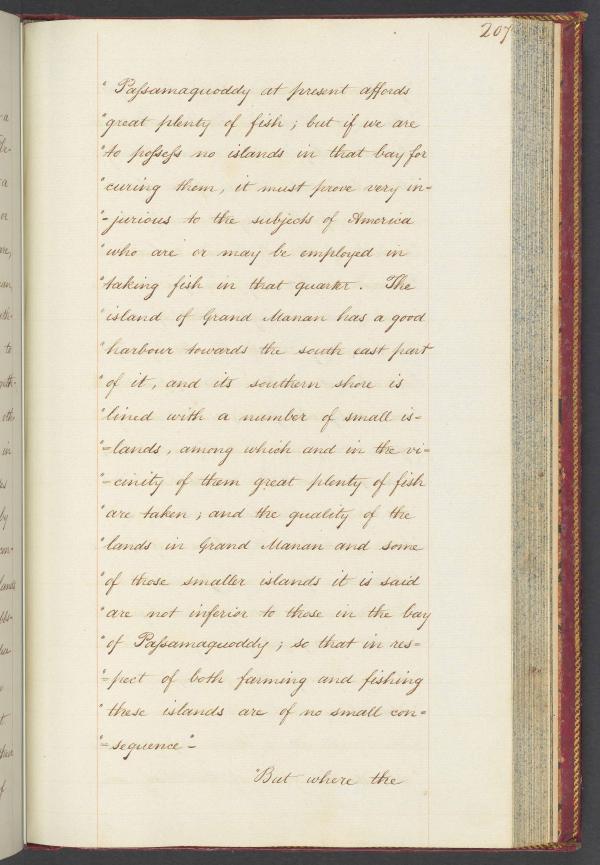 207
" Paſsamaquoddy at present affords
" great plenty of fish ; but if we are
" to poſseſs no islands in that bay for
" curing them, it must prove very in=
"=jurious to the subjects of America
" who are or may be employed in
" taking fish in that quarter. The
" island of Grand Manan has a good
" harbour towards the south east part
" of it, and its southern shore is
" lined with a number of small is=
"=lands, among which and in the vi=
"=cinity of them great plenty of fish
" are taken ; and the quality of the
" lands in Grand Manan and some
" of those smaller islands it is said
" are not inferior to those in the bay
" of Paſsamaquoddy ; so that in res=
"=pect of both farming and fishing
" these islands are of no small con=
"=sequence"-
"But where the